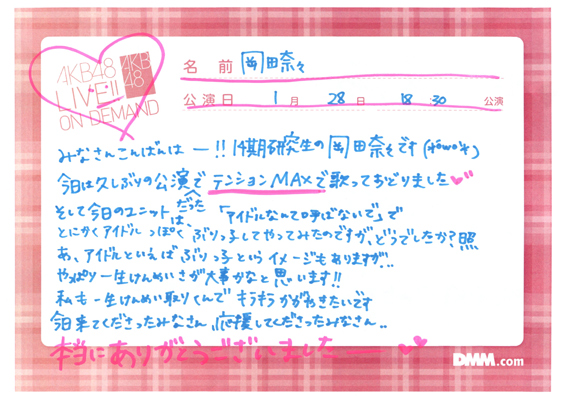 AKB48
LIVE!!
ON DEMAND
AKB
48
名前 岡田奈々
公演日 1月 28日 18:30 公演
みなさんこんばんはー!! 14期研究生の岡田奈々です(*°ω°*)
今日は久しぶりの公演でテンションMAXで歌っておどりました
そして今日のユニットだったは、「アイドルなんて呼ばないで」で
とにかくアイドルっぽくぶりっ子してやってみたのですが、どうでしたか?照
あ、アイドルといえばぶりっ子というイメージもありますが…
やっぱり一生けんめいさが大事かなと思います!!
私も一生けんめい取りくんでキラキラかがやきたいです
今日来てくださったみなさん、応援してくださったみなさん..
本当にありがとうございましたー
DMM.com